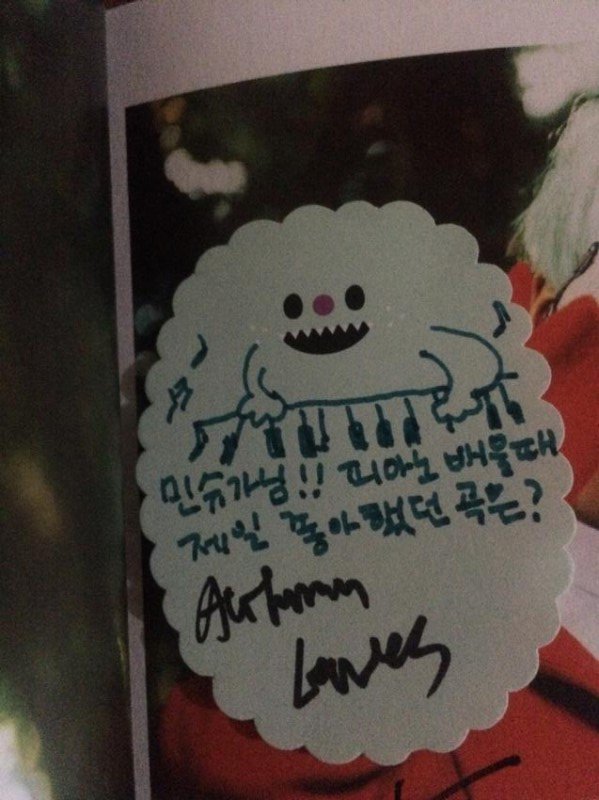 민슈가님!! 피아노 배울때
제일 좋아했던 곡은?
Autumn
Leaves